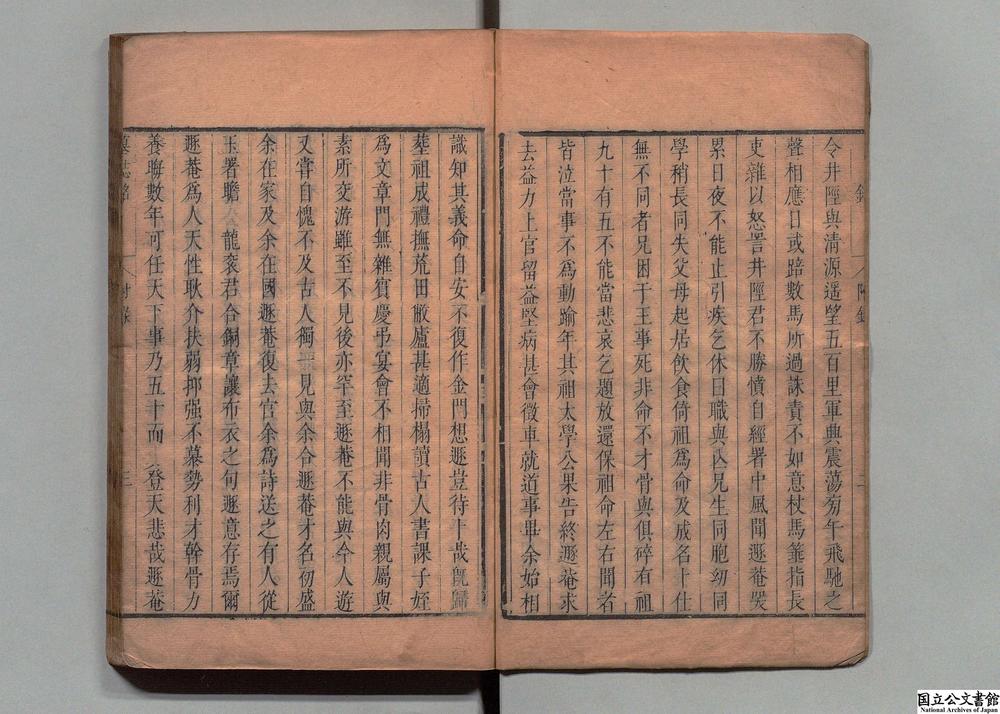 令井陘與清源遥望五百里軍典震蕩旁午飛馳之
聲相應日或踣數馬所過誅責不如意杖馬箠指長
吏雜以怒詈井陘君不勝憤自經署中風聞遯菴哭
累日夜不能止引疾乞休曰職與亾兄生同胞幼同
學稍長同失父母起居飲食倚祖爲命及成名十仕
無不同者兄困于王事死非命不才骨與俱碎有祖
九十有五不能當悲哀乞題放還保祖命左右聞者
皆泣當事不爲動踰年其祖太學公果告終遯菴求
去益力上官留益堅病甚會徵車就道事畢余始相
識知其義命自安不復作金門想遯豈待卜哉旣歸
塟祖成禮撫荒田敝廬甚適掃榻讀古人書課子姪
爲文章門無雜賓慶弔宴會不相聞非骨肉親屬與
素所交游雖至不見後亦罕至遯菴不能與今人遊
又嘗自愧不及古人獨見與余合遯菴才名初盛
余在家及余在國遯菴復去官余爲詩送之有人從
玉署瞻龍衮君合銅章讓布衣之句遯意存焉爾
遯菴爲人天性耿介扶弱抑强不慕勢利才幹骨力
養晦數年可任天下事乃五十而登天悲哉遯菴
墓誌銘
附錄
三
附錄
二
国立公文書館
National Archives of Japan